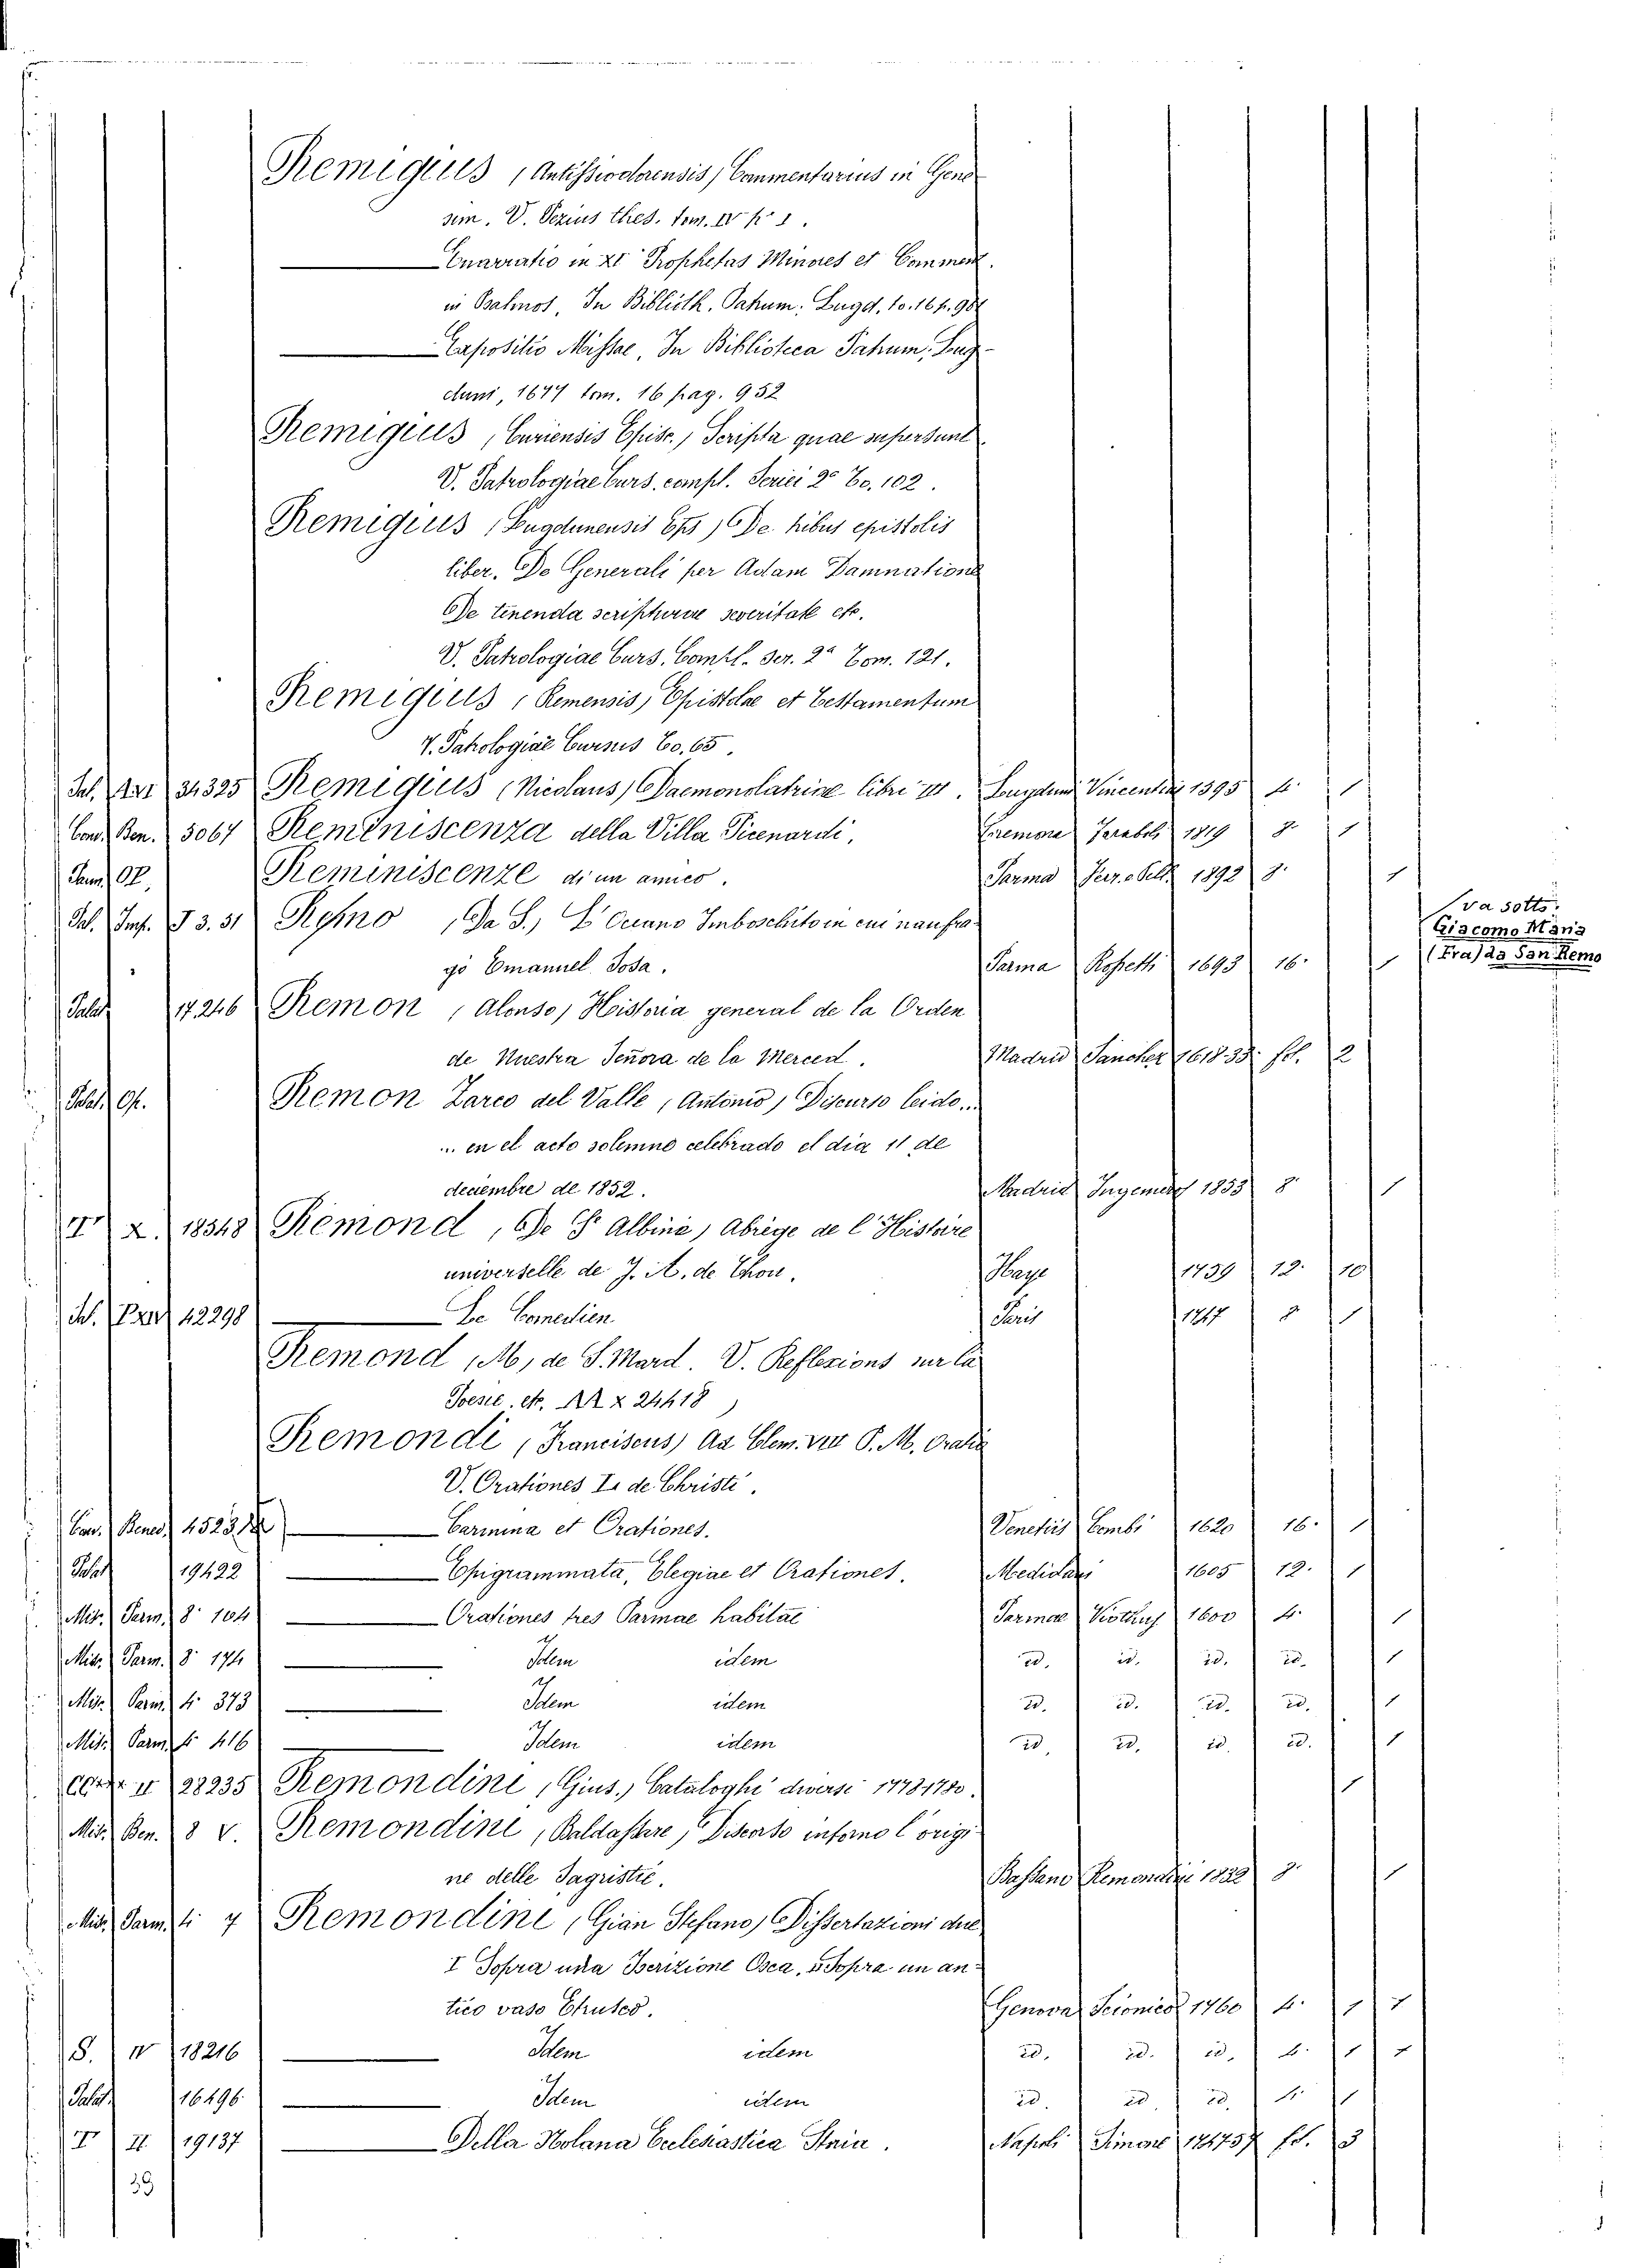 Remigius (Antissiodorensis) Commentarius in Gene
sim. V. Pezius thes. tom. IV p. 1.
Enarratio in XI Prophetas Minores et Comment.
in Psalmos, In Biblioth. Patrum. Lugd. to. 16 p. 98
Expositio Missae, In Biblioteca Patrum, Lug-
duni, 1677 tom. 16 pag. 952
Remigius (Curiensis Episc.) Scripta quae supersunt
V. Patrologiae Curs. compl. Seriei 2ª To. 102.
Remigius (Lugdunensis Eps) De tribus epistolis
liber. De Generali per Adam Damnatione
De tenenda scripturae severitate etc.
V. Patrologiae Curs. Compl. Ser. 2ª Tom. 121.
Remigius (Remensis) Epistolae et Testamentum
V. Patrologiae Cursus To. 65.
Pal. 34325 Remigius (Nicolaus) Daemonolatriae libri III. Lugduni Vincentii 1595 4. 1
Conv. Ben. 3067 Reminiscenza della Villa Picenardi. Cremona 1819 8. 1
Parm. OP. Reminiscenze di un amico. Parma 1892 8. 1
Pal. Imp. F 3. 31 Remo (Da S.) L'Oceano Imboschito in cui naufra-
gò Emanuel Sosa. Parma Rossetti 1693 16. 1
va sotto:
Giacomo Maria
(Fra) da San Remo
Palat. 17246 Remon (Alonso) Historia general de la Orden
de Nuestra Señora de la Merced. Madrid Sanchez 1618 33 fol. 2
Palat. Op. Remon Zarco del Valle (Antonio) Discurso leido...
... en el acto solemne celebrado el dia 11 de
deciembre de 1852. Madrid 1853 8. 1
T. X. 18548 Remond (De S. Albine) Abrégé de l'Histoire
universelle de J. A. de Thou. Haye 1739 12. 10
Pal. 42298 Le Comedien Paris 1747 8 1
Remond (M. de S. Mard. V. Reflexions sur la
Poesie, etc. X 24418)
Remondi (Franciscus) Ad Clem. VIII P. M. Oratio
V. Orationes I. de Christi.
Conv. Bened. 4523 Carmina et Orationes. Venetiis Combi 1620 16. 1
Palat. 19422 Epigrammata, Elegiae et Orationes. Mediolani 1605 12. 1
Misc. Parm. 8º 104 Orationes tres Parmae habitae Parmae Viothus 1600 4. 1
Misc. Parm. 8º 174 Idem idem id. id. id. id. 1
Misc. Parm. 4º 373 Idem idem id. id. id. id. 1
Misc. Parm. 4º 416 Idem idem id. id. id. id. 1
II 28235 Remondini (Gius.) Cataloghi diversi 1778 1780. 1
Misc. Ben. 8 V. Remondini (Baldassare) Discorso intorno l'origi
ne delle Sagristie. Bassano Remondini 1822 8. 1
Misc. Parm. 4º 7 Remondini (Gian Stefano) Dissertazioni due
I Sopra una Iscrizione Osca, II Sopra un an-
tico vaso Etrusco. Genova Scionico 1760 4. 1 1
S. IV 18216 Idem idem id. id. id. 4. 1 1
Palat. 16496 Idem idem id. id. id. 4. 1
T II 19137 Della Nolana Ecclesiastica Storia. Napoli Simone 1747 57 fol. 3
39